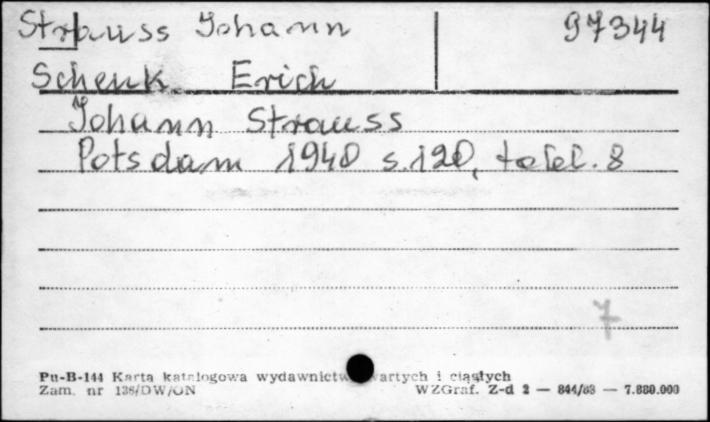 Strauss Johann 97344
Schenk Erich
Johann Strauss
Potsdam 1940 s.120, tafel. 8
7
Pu-B-144 Karta katalogowa wydawnictw zwartych i ciągłych
Zam. nr 136/DW/ON WZGraf. Z-d 2 — 844/63 — 7.880.000